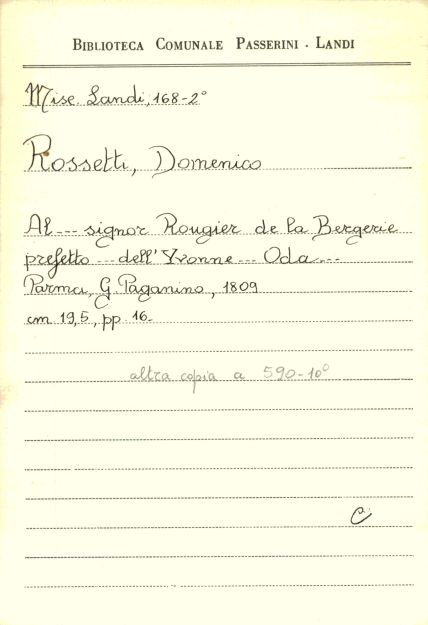 BIBLIOTECA COMUNALE PASSERINI - LANDI
Misc. Landi, 168-2°
Rossetti, Domenico
Al --- signor Rougier de la Bergerie
prefetto --- dell'Yvonne --- Oda ---
Parma, G. Paganino, 1809
cm 19,5, pp. 16.
altra copia a 590-10°
C